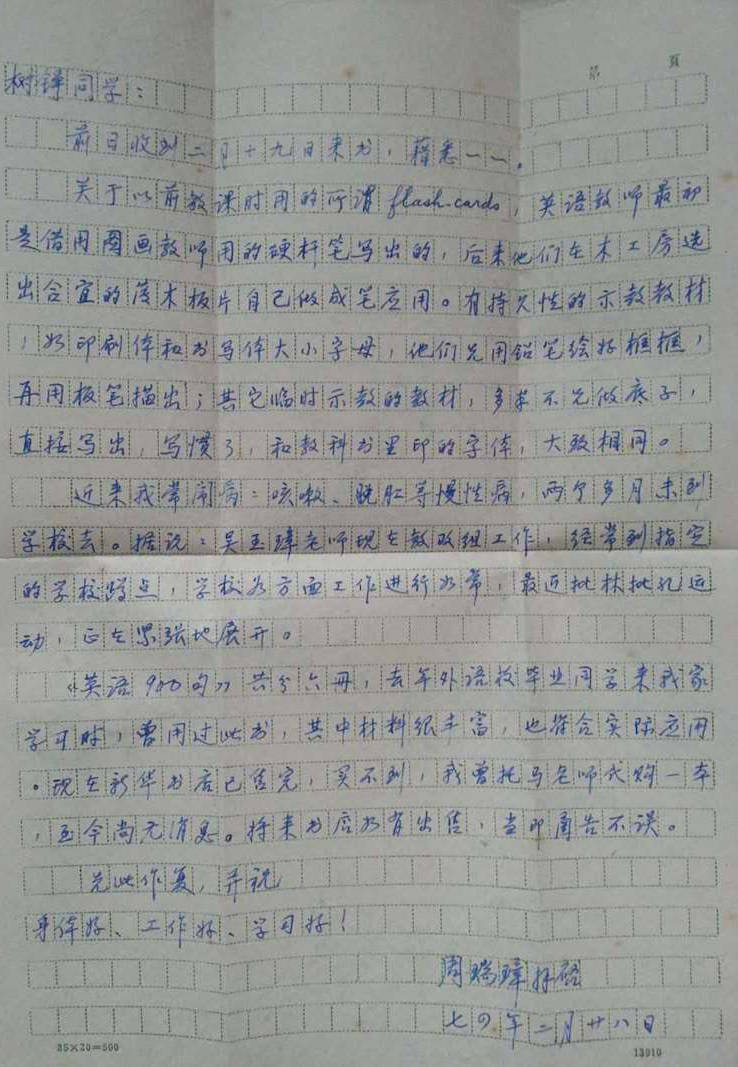 第 頁
树铎同学：
前日收到二月十九日来书，藉悉一一。
关于以前教课时用的所谓 flash-cards，英语教师最初
是借用图画教师用的硬杆笔写出的，后来他们在木工房选
出合宜的薄木板片自己做成笔应用。有持久性的示教教材
，如印刷体和书写体大小字母，他们先用铅笔绘好框框，
再用板笔描出；其它临时示教的教材，多半不先做底子，
直接写出，写惯了，和教科书里印的字体，大致相同。
近来我常闹病：咳嗽、脱肛等慢性病，两个多月未到
学校去。据说：吴玉璋老师现在教改组工作，经常到指定
的学校蹲点，学校各方面工作进行如常，最近批林批孔运
动，正在紧张地展开。
《英语900句》共分六册，去年外语校毕业同学来我家
学习时，曾用过此书，其中材料很丰富，也符合实际应用
。现在新华书店已售完，买不到，我曾托马老师代购一本
，至今尚无消息。将来书店如有出售，当即函告不误。
先此作复，并祝
身体好、工作好、学习好！
周瑞璋拜启
七四年二月廿八日
25×20=500
13910